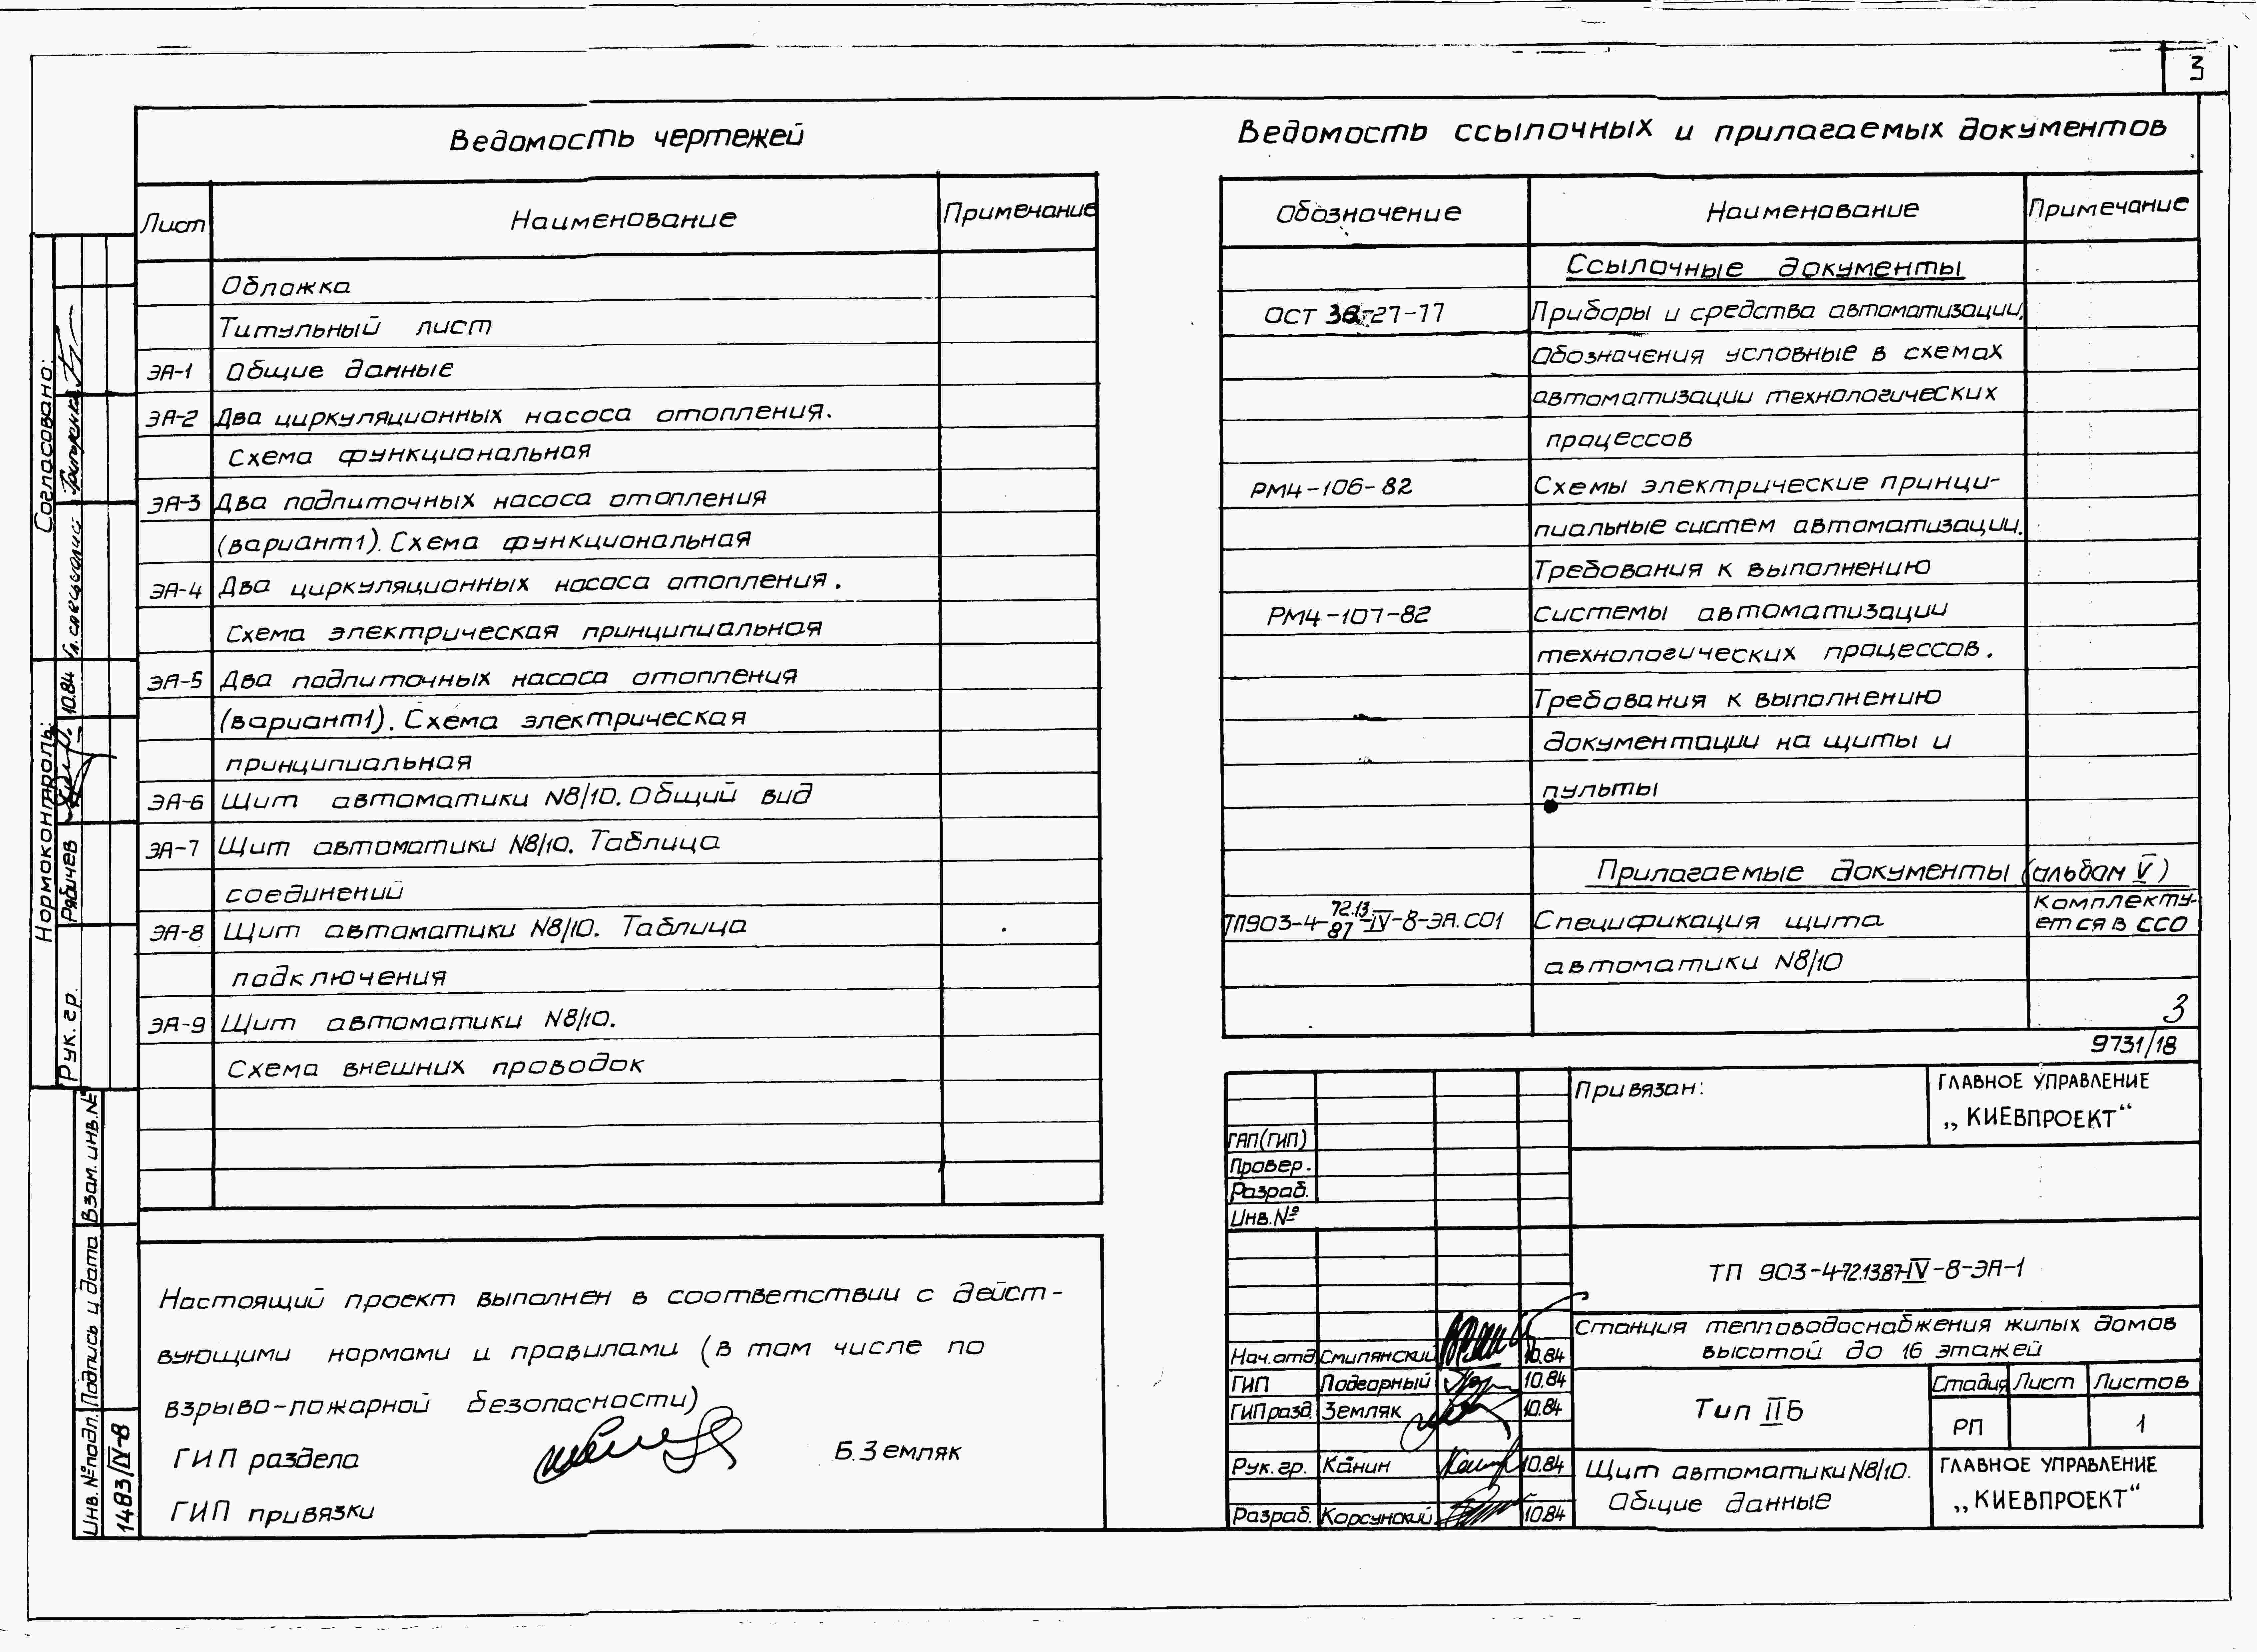 3
Ведомость чертежей
Лист Наименование Примечание
Обложка
Титульный лист
ЭА-1 Общие данные
ЭА-2 Два циркуляционных насоса отопления.
Схема функциональная
ЭА-3 Два подпиточных насоса отопления
(вариант1). Схема функциональная
ЭА-4 Два циркуляционных насоса отопления.
Схема электрическая принципиальная
ЭА-5 Два подпиточных насоса отопления
(вариант1). Схема электрическая
принципиальная
ЭА-6 Щит автоматики N8/10. Общий вид
ЭА-7 Щит автоматики N8/10. Таблица
соединений
ЭА-8 Щит автоматики N8/10. Таблица
подключения
ЭА-9 Щит автоматики N8/10.
Схема внешних проводок
Настоящий проект выполнен в соответствии с дейст-
вующими нормами и правилами (в том числе по
взрыво-пожарной безопасности)
ГИП раздела Б.Земляк
ГИП привязки
Ведомость ссылочных и прилагаемых документов
Обозначение Наименование Примечание
Ссылочные документы
ОСТ 36-27-77 Приборы и средства автоматизации.
Обозначения условные в схемах
автоматизации технологических
процессов
РМ4-106-82 Схемы электрические принци-
пиальные систем автоматизации.
Требования к выполнению
РМ4-107-82 системы автоматизации
технологических процессов.
Требования к выполнению
документации на щиты и
пульты
Прилагаемые документы (альбом V)
ТП903-4-72.13.87-IV-8-ЭА.СО1 Спецификация щита Комплекту-
ется в ССО
автоматики N8/10
3
9731/18
Привязан:
ГЛАВНОЕ УПРАВЛЕНИЕ
„КИЕВПРОЕКТ“
ГАП(ГИП)
Провер.
Разраб.
Инв.№
ТП 903-4-72.13.87-IV-8-ЭА-1
Станция тепловодоснабжения жилых домов
высотой до 16 этажей
Нач.отд. Смилянский 10.84
ГИП Подгорный 10.84
ГИПразд. Земляк 10.84
Рук.гр. Канин 10.84
Разраб. Корсунский 10.84
Тип IIБ
Стадия Лист Листов
РП 1
Щит автоматики N8/10.
Общие данные
ГЛАВНОЕ УПРАВЛЕНИЕ
„КИЕВПРОЕКТ“
Согласовано:
Гл.специалист Григоренко
Нормоконтроль:
Рук. гр. Рябичев 10.84
Взам. инв.№
Подпись и дата
Инв.№подл.
1483/IV-8